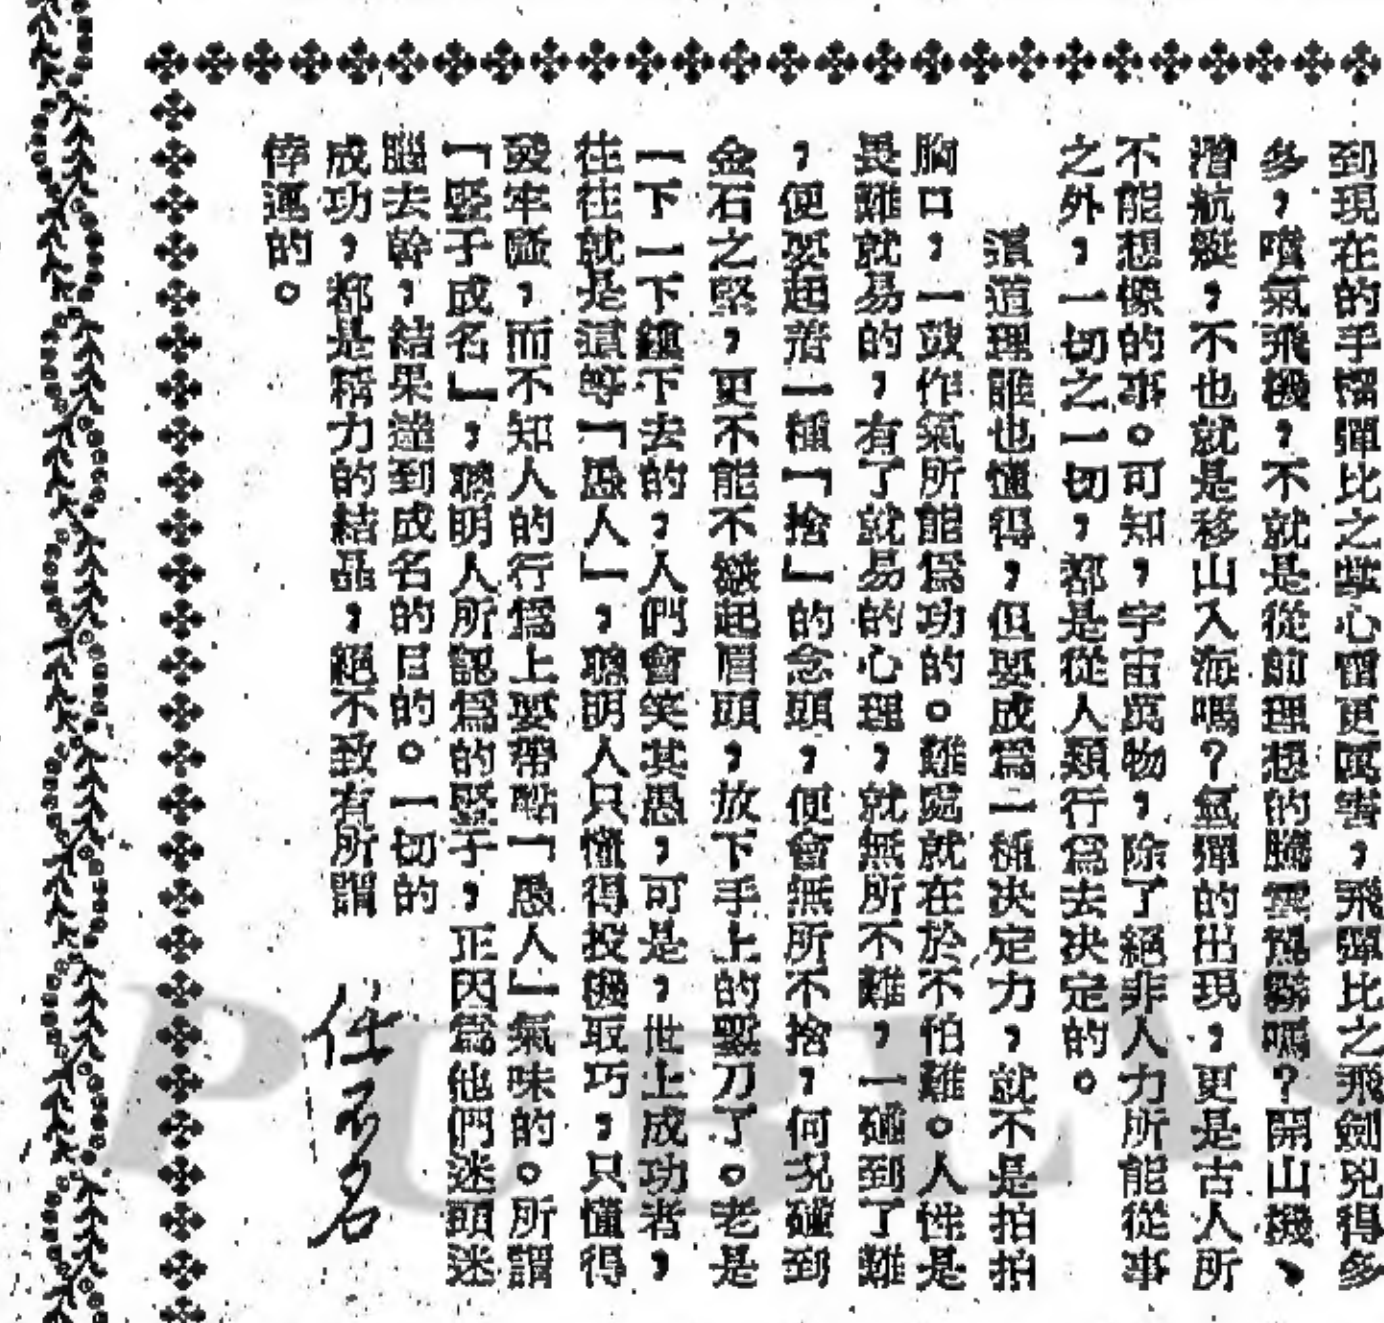 到現在的手榴彈比之掌心雷更厲害，飛彈比之飛劍兇得多
多，噴氣飛機，不就是從前理想的騰雲駕霧嗎？開山機、
潛航艇，不也就是移山入海嗎？氫彈的出現，更是古人所
不能想像的事。可知，宇宙萬物，除了絕非人力所能從事
之外，一切之一切，都是從人類行爲去決定的。
這道理誰也懂得，但要成爲一種決定力，就不是拍拍
胸口，一鼓作氣所能爲功的。難處就在於不怕難。人性是
畏難就易的，有了就易的心理，就無所不難，一碰到了難
，便要起着一種「捨」的念頭，便會無所不捨，何況碰到
金石之堅，更不能不皺起眉頭，放下手上的鑿刀了。老是
一下一下鑿下去的，人們會笑其愚，可是，世上成功者，
往往就是這等「愚人」，聰明人只懂得投機取巧，只懂得
發牢騷，而不知人的行爲上要帶點「愚人」氣味的。所謂
「豎子成名」，聰明人所認爲的豎子，正因爲他們迷頭迷
腦去幹，結果達到成名的目的。一切的
成功，都是精力的結晶，絕不致有所謂
倖運的。
任不名
PUBLIC